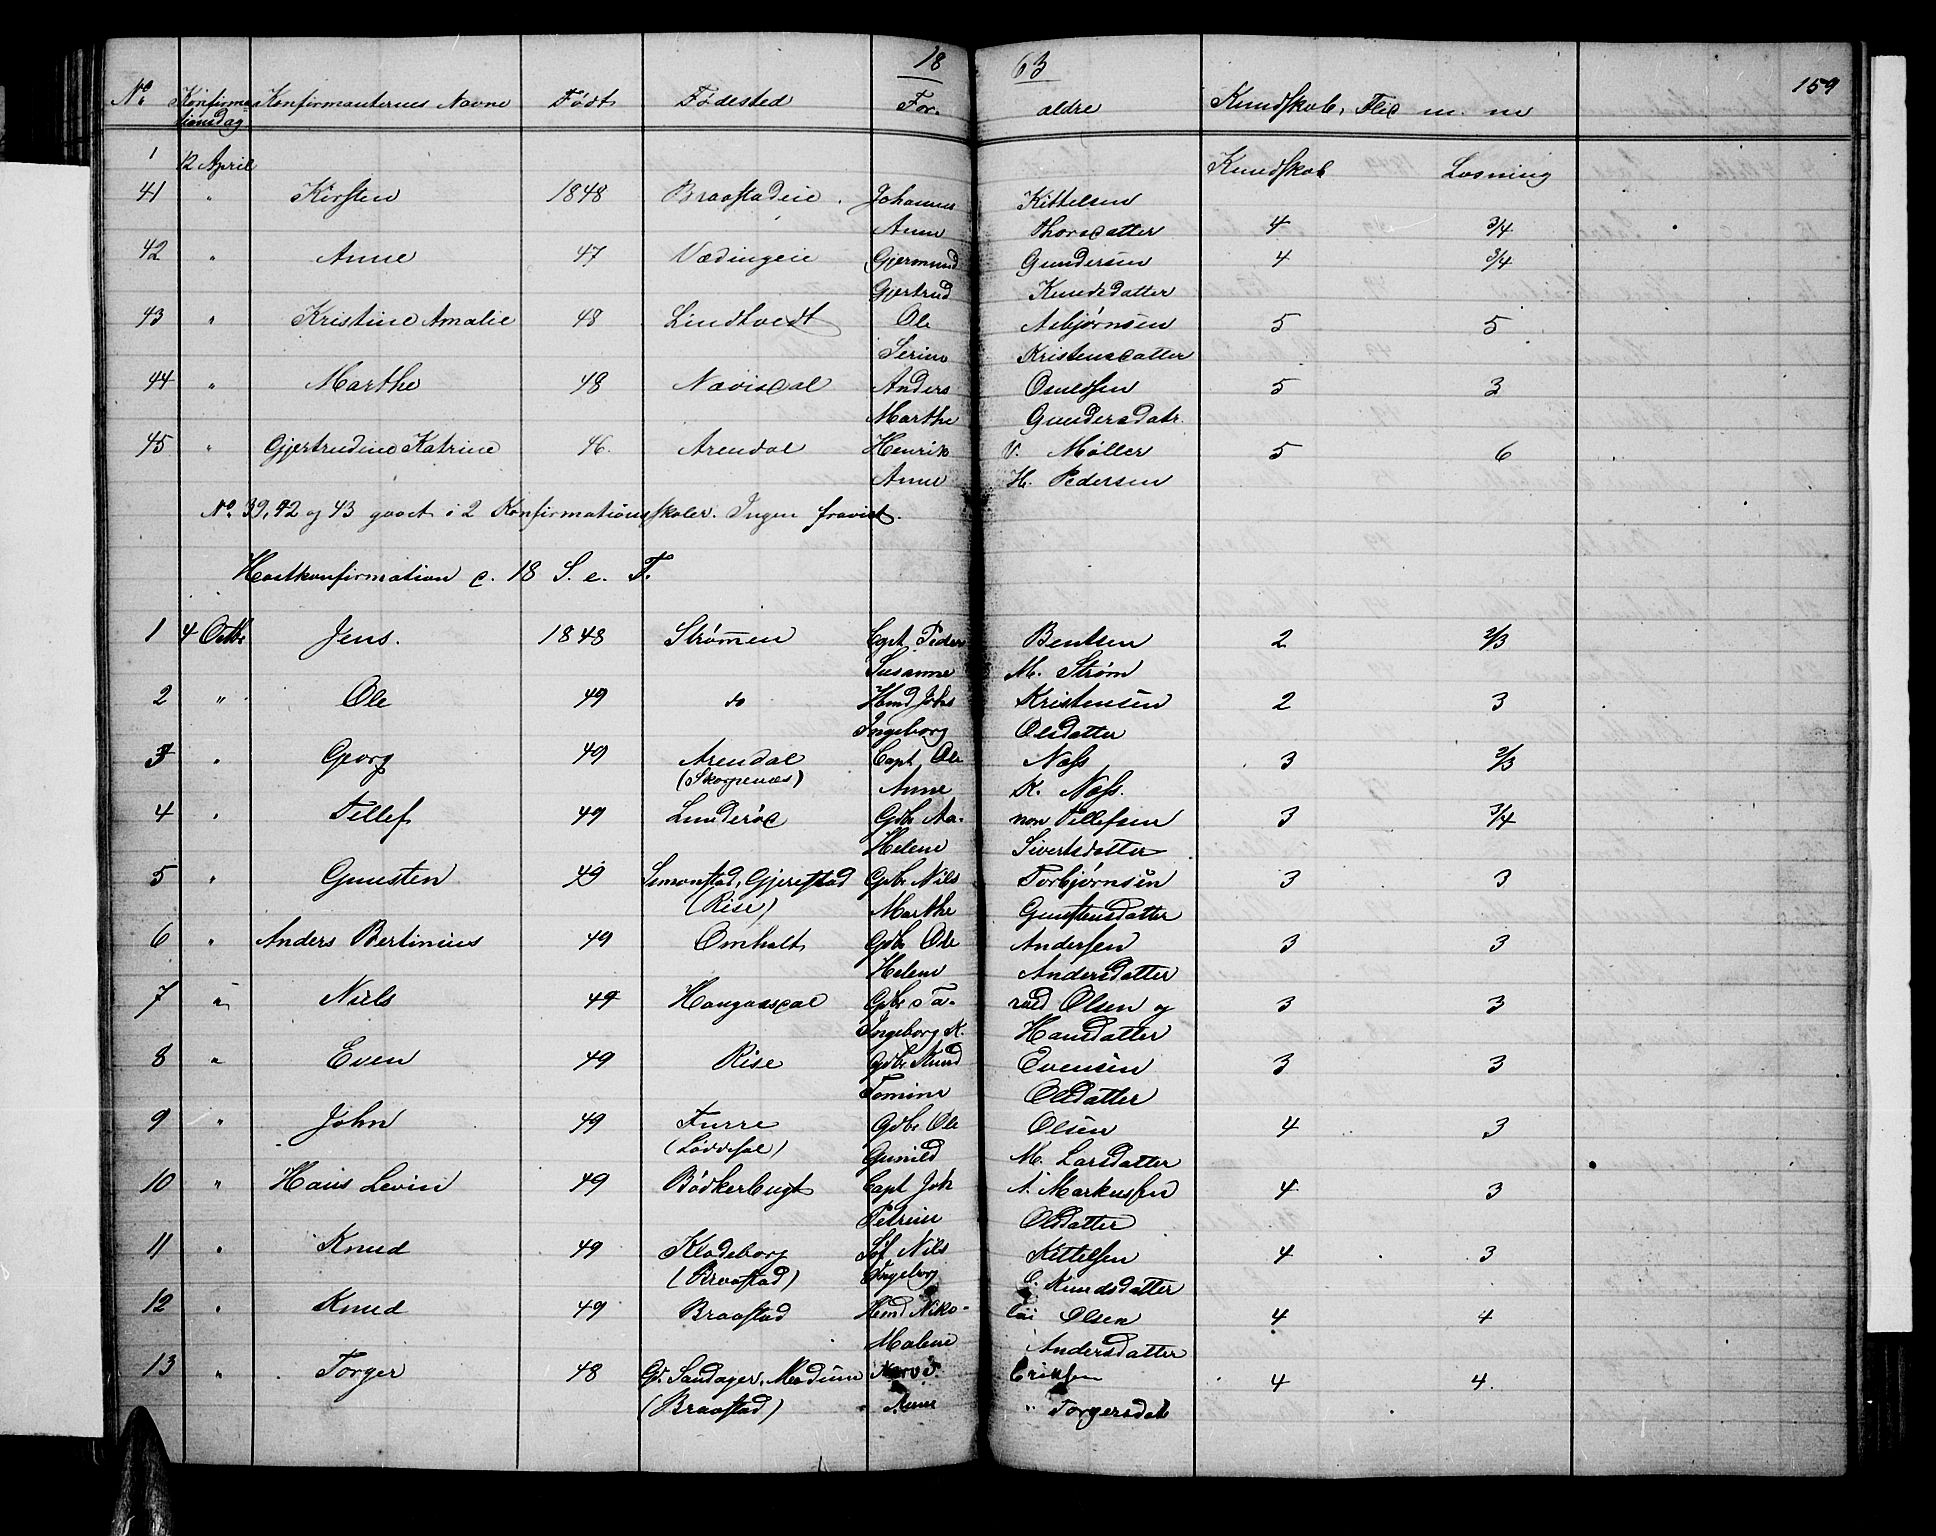 18 63
159
No. Konfirmationsdag Konfirmanternes Navne Født Fødested For- ældre Kundskab, Flid m. m
1 12 April Kundskab Læsning
41 " Kirsten 1848 Braastadeie Johannes Kittelsen
Anne Thorsdatter 4 3/4
42 " Anne 47 Vædingeie Gjermund Gundersen 4 3/4
Gjertrud Knudsdatter
43 " Kristine Amalie 48 Lindtvedt Ole Asbjørnsen 5 5
Serine Kristensdatter
44 " Marthe 48 Nævisdal Anders Osuldsen 5 3
Marthe Gundersdatr.
45 " Gjertrudine Katrine 46. Arendal Henrik V. Møller 5 6
Anne H. Pedersen
No. 39, 42 og 43 gaaet i 2 Konfirmationsskoler. Ingen fravist.
Høstkonfirmation d. 18 S. e. T.
1 4 Octbr Jens. 1848 Strømmen Capt Peder Bentsen 2 2/3
Susanne M. Strøm
2 " Ole 49 do Hmd Johs Kristensen 2 3
Ingeborg Olsdatter
3 " Georg 49 Arendal Capt. Ole Næss 3 2/3
(Skarpenæs) Anne K. Næss.
4 " Tellef 49 Lunderød Gdbr Aa- non Tellefsen 3 3/4
Helene Sivertsdatter
5 " Gunsten 49 Simonstad, Gjerestad Gdbr Nils Torbjørnsen 3 3
(Rise) Marthe Gunstensdatter
6 " Anders Bertinius 49 Omholt Gdbr Ole Andersen 3 3
Helene Andersdatter
7 " Niels 49 Haugaasdal Gdbr Ta- rald Olsen og 3 3
Ingeborg K. Hansdatter
8 " Even 49 Rise Gdbr Knud Evensen 3 3
Tomine Olsdatter
9 " John 49 Furre Gdbr Ole Olsen 4 3
(Løddesøl) Gunild M. Larsdatter
10 " Hans Levin 49 Bødkerbugt Capt Joh A. Markussen 4 3
Petrine Olsdatter
11 " Knud 49 Klodeborg Søf Nils Kittelsen 4 3
(Braastad) Ingeborg Knudsdatter
12 " Knud 49 Braastad Hmd Niko- lai Olsen 4 4
Malene Andersdatter
13 " Torger 48 Gr. Sandager, Mødium Erikssen 4 4.
(Braastad) Anne " Torgersdat